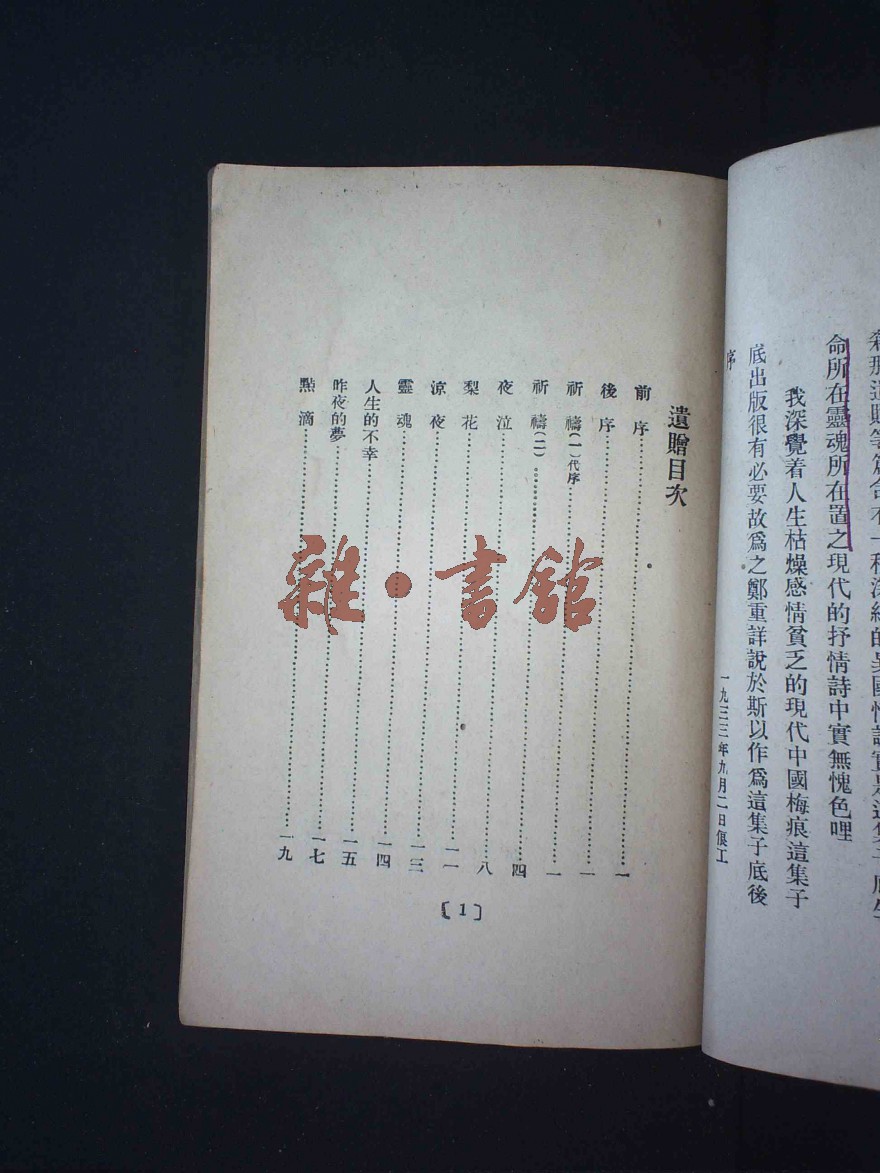 命所在靈魂所在置之現代的抒情詩中實無愧色哩
我深覺着人生枯燥感情貧乏的現代中國梅痕這集子
底出版很有必要故爲之鄭重詳說於斯以作爲這集子底後
序
一九三三年九月二日俍工
遺贈目次
前序 一
後序 一
祈禱(一)代序 一
祈禱(二) 四
夜泣 八
梨花 一一
涼夜 一三
靈魂 一四
人生的不幸 一五
昨夜的夢 一七
點滴 一九
〔1〕
雜·書館